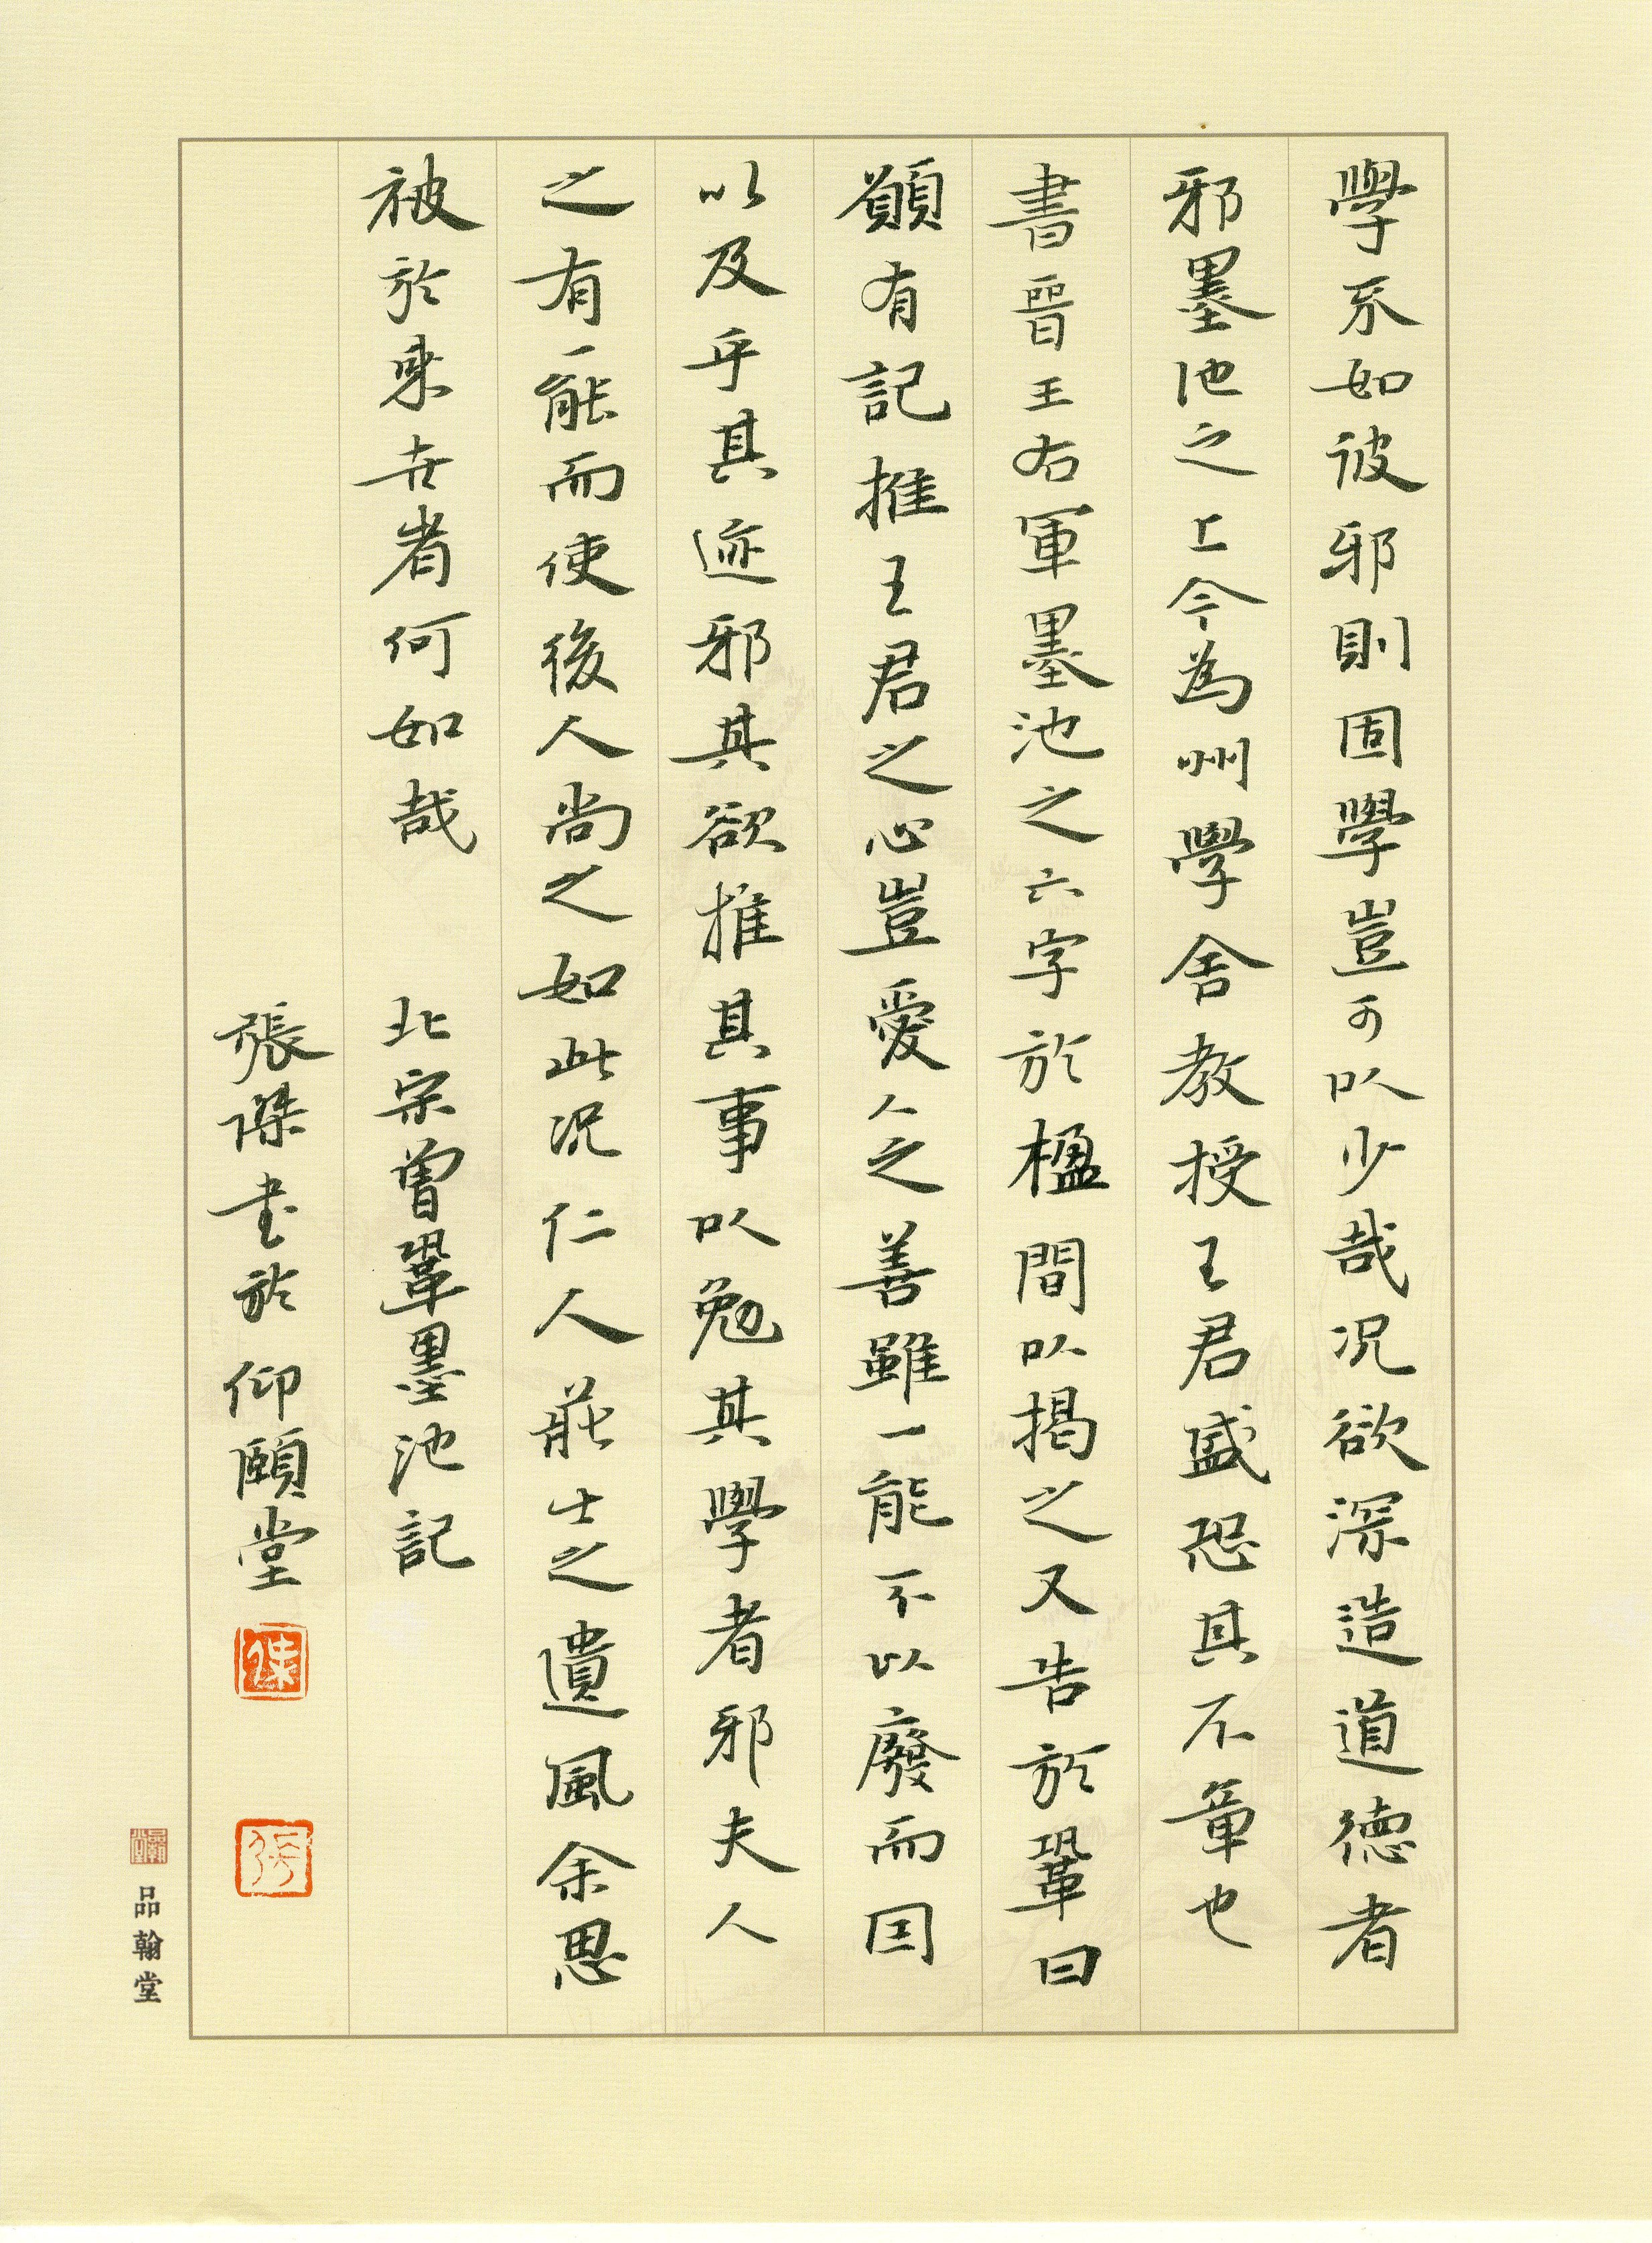 學不如彼邪則固學豈可以少哉况欲深造道德者
邪墨池之上今為州學舍教授王君盛恐其不章也
書晉王右軍墨池之六字於楹間以揭之又告於鞏曰
願有記推王君之心豈愛人之善雖一能不以廢而因
以及乎其迹邪其欲推其事以勉其學者邪夫人
之有一能而使後人尚之如此况仁人莊士之遺風余思
被於來世者何如哉 北宗曾鞏墨池記
張傑書於仰頤堂
品翰堂